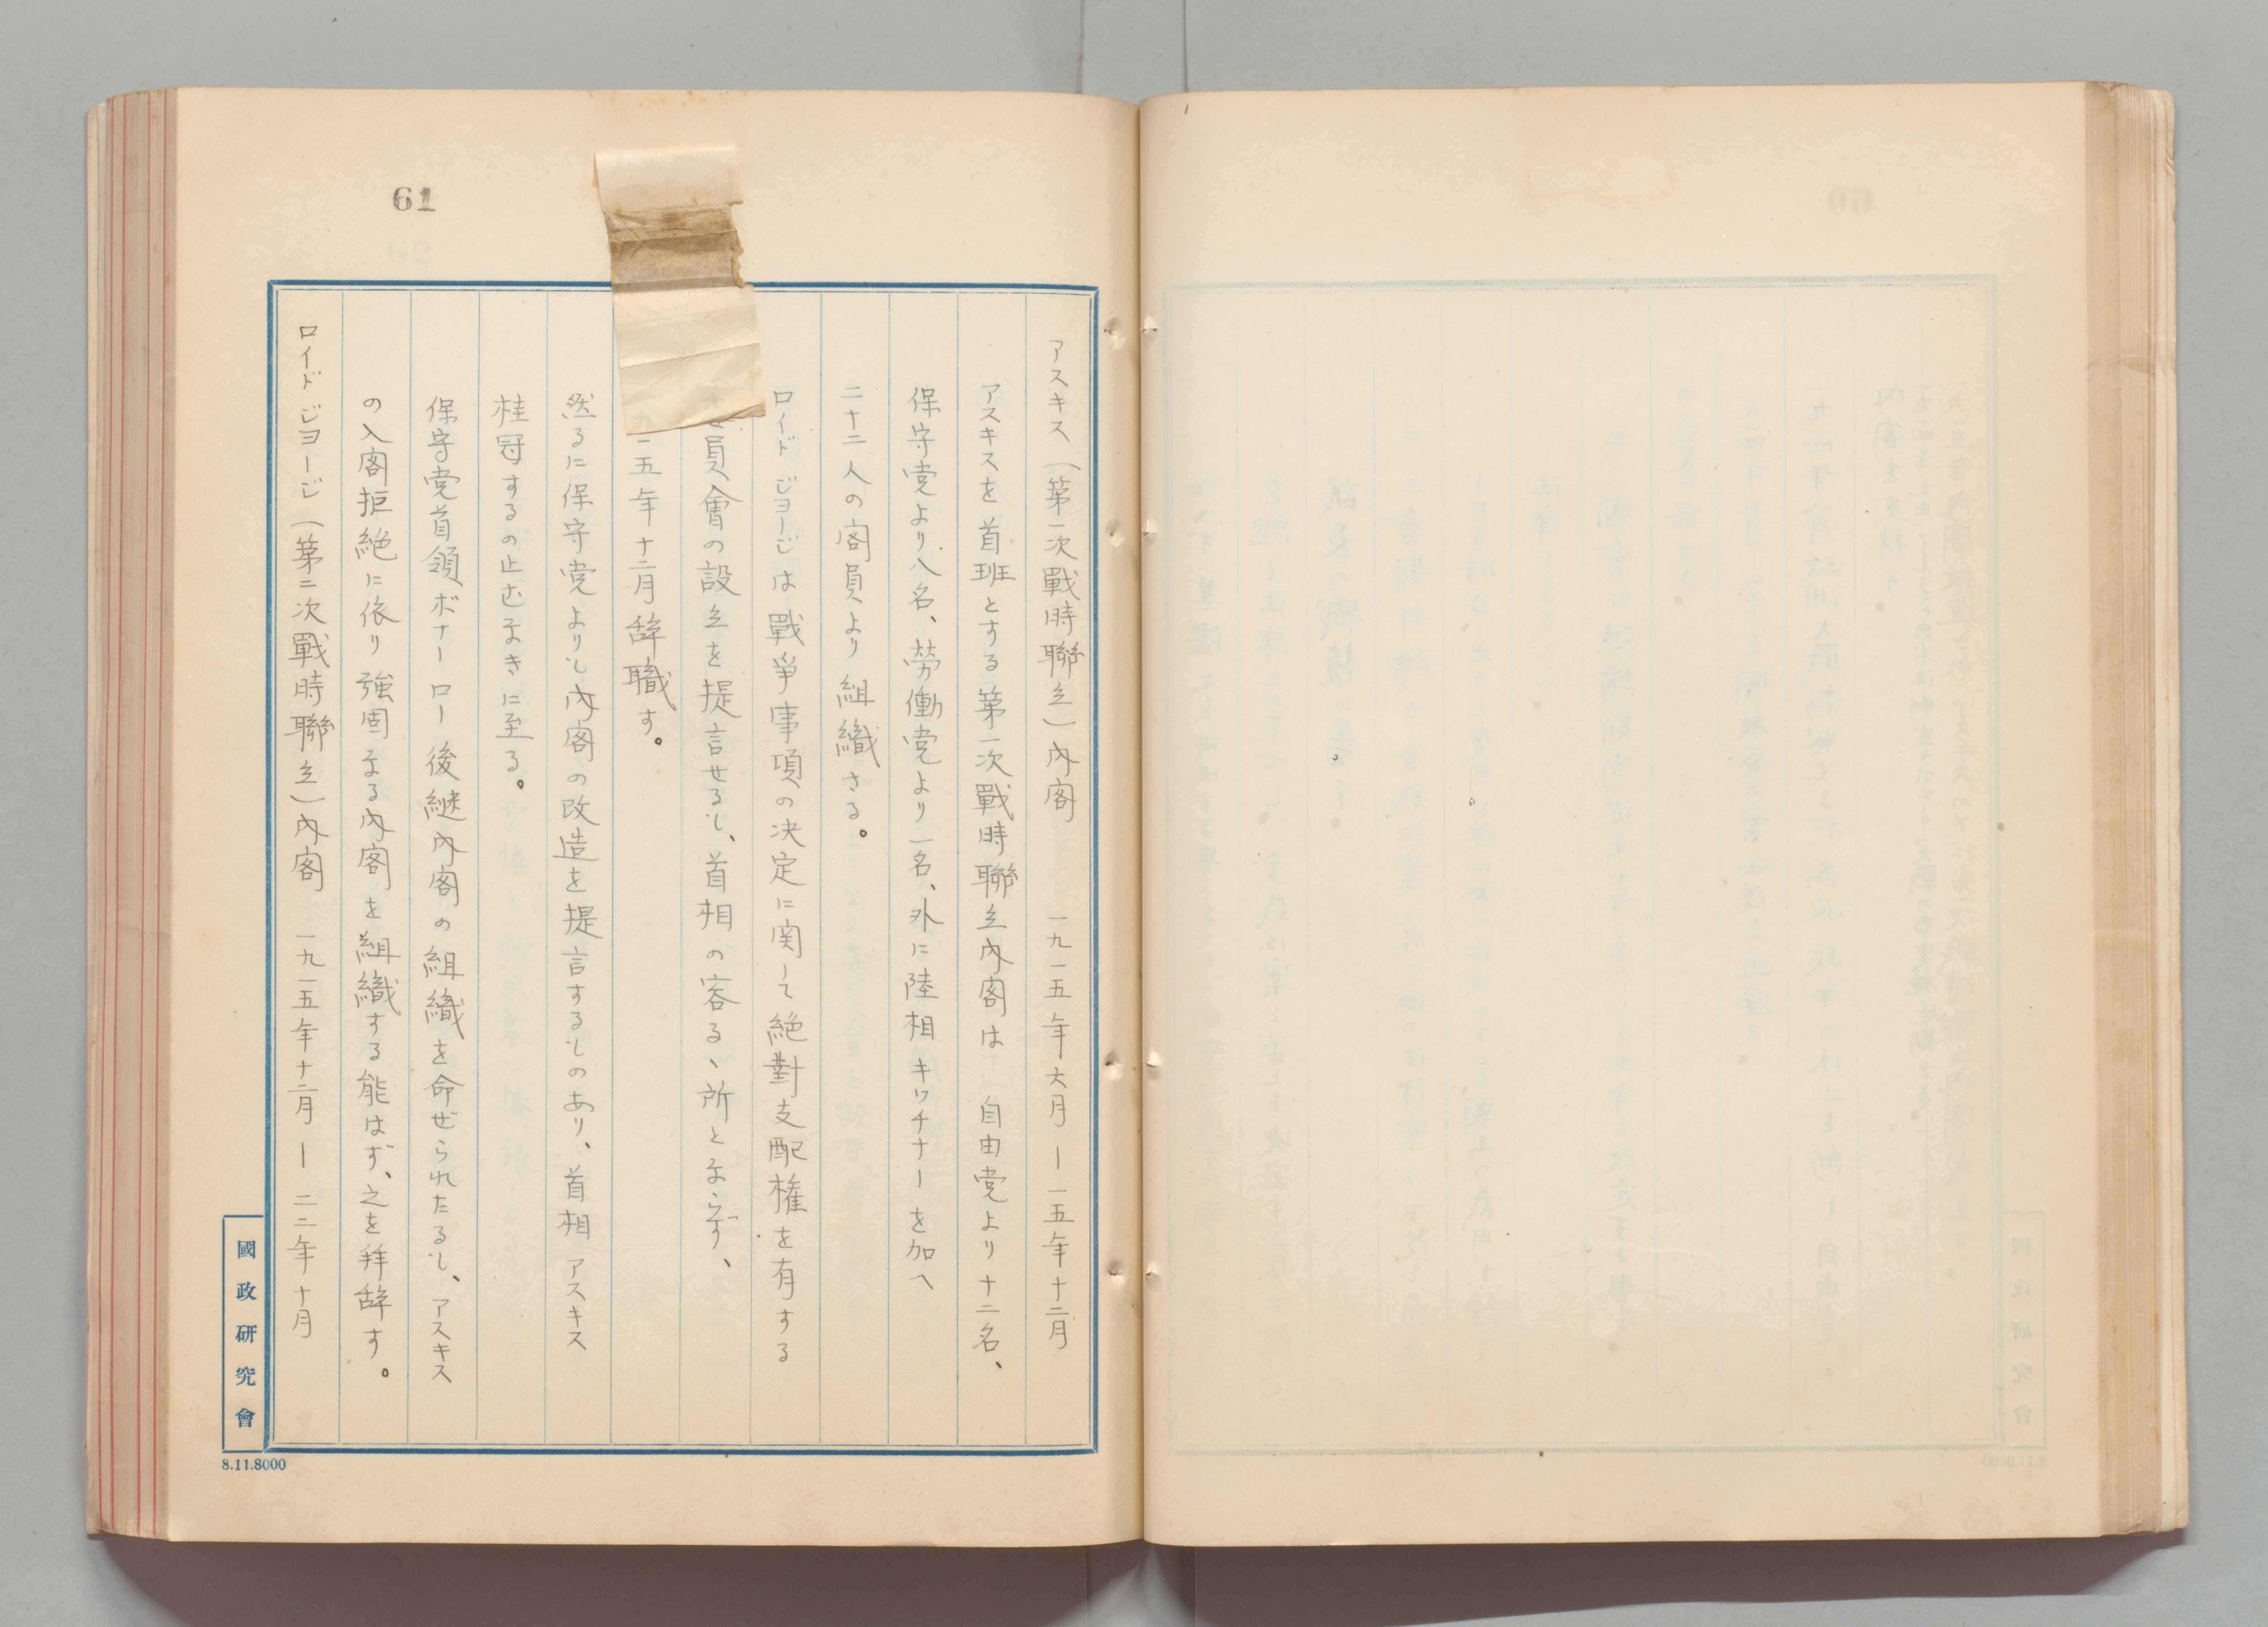 61
アスキス(第一次戰時聯立)內閣 一九一五年六月ー一五年十二月
アスキスを首班とする第一次戰時聯立內閣は 自由党より十二名、
保守党より八名、労働党より一名、外に陸相キッチナーを加へ
二十二人の閣員より組織さる。
ロイドジョージは戰爭事項の決定に関して絶對支配権を有する
員會の設立を提言せるも、首相の容るゝ所とならず、
二五年十二月辞職す。
然るに保守党よりも內閣の改造を提言するものあり、首相アスキス
桂冠するの止むなきに至る。
保守党首領ボナーロー後継內閣の組織を命ぜられたるも、アスキス
の入閣拒絶に依り強固なる內閣を組織する能はず、之を拜辞す。
ロイドジョージ(第二次戰時聯立)內閣 一九一五年十二月ー二二年十月
國政研究會
8.11.8000